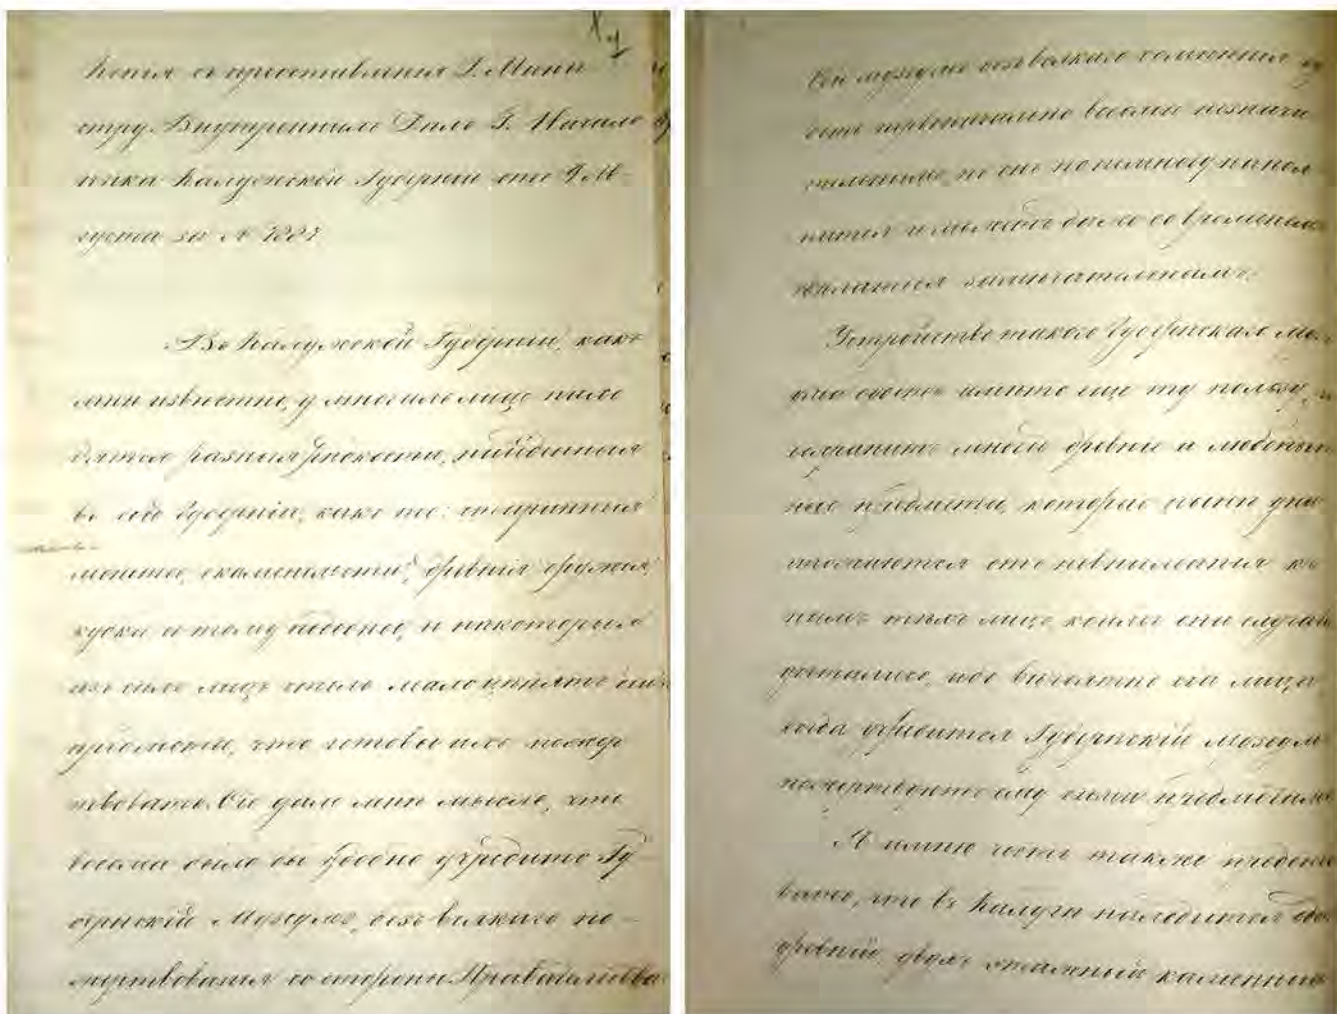 Копія съ представленія Г. Мини
стру Внутреннихъ Дѣлъ Г. Началь
ника Калужской Губерніи отъ 9 Ав-
густа за №
Въ Калужской Губерніи, какъ
мнѣ извѣстно, у многихъ лицъ нахо
дятся разныя рѣдкости, найденныя
въ сей Губерніи, какъ то: старинныя
монеты, окаменѣлости, древнія оружія,
куски и тому подобное, и нѣкоторыя
изъ сихъ лицъ столь мало цѣнятъ сіи
предметы, что готовы ихъ пожер
твовать. Сіе дало мнѣ мысль, что
весьма было бы удобно учредить Гу-
бернскій Музеумъ, безъ всякаго по-
жертвованія со стороны Правительства
Сей музеумъ безъ всякаго сомнѣнія
первоначально весьма незначи
тельнымъ, но онъ по немногу попол
нится и можетъ быть со временемъ
сдѣлается замѣчательнымъ.
Устройство такого Губернскаго Му
будетъ имѣть еще ту пользу,
сохранитъ многіе древніе и любопыт
ные предметы, которые нынѣ уни
чтожаются отъ невниманія къ
нимъ тѣхъ лицъ, коимъ они случай
достались, ибо вѣроятно сіи лица
когда учредится Губернскій Музеумъ
пожертвуютъ ему сими предметами
Я имѣю честь также
что въ Калугѣ находится
древній, двухъ этажный каменный